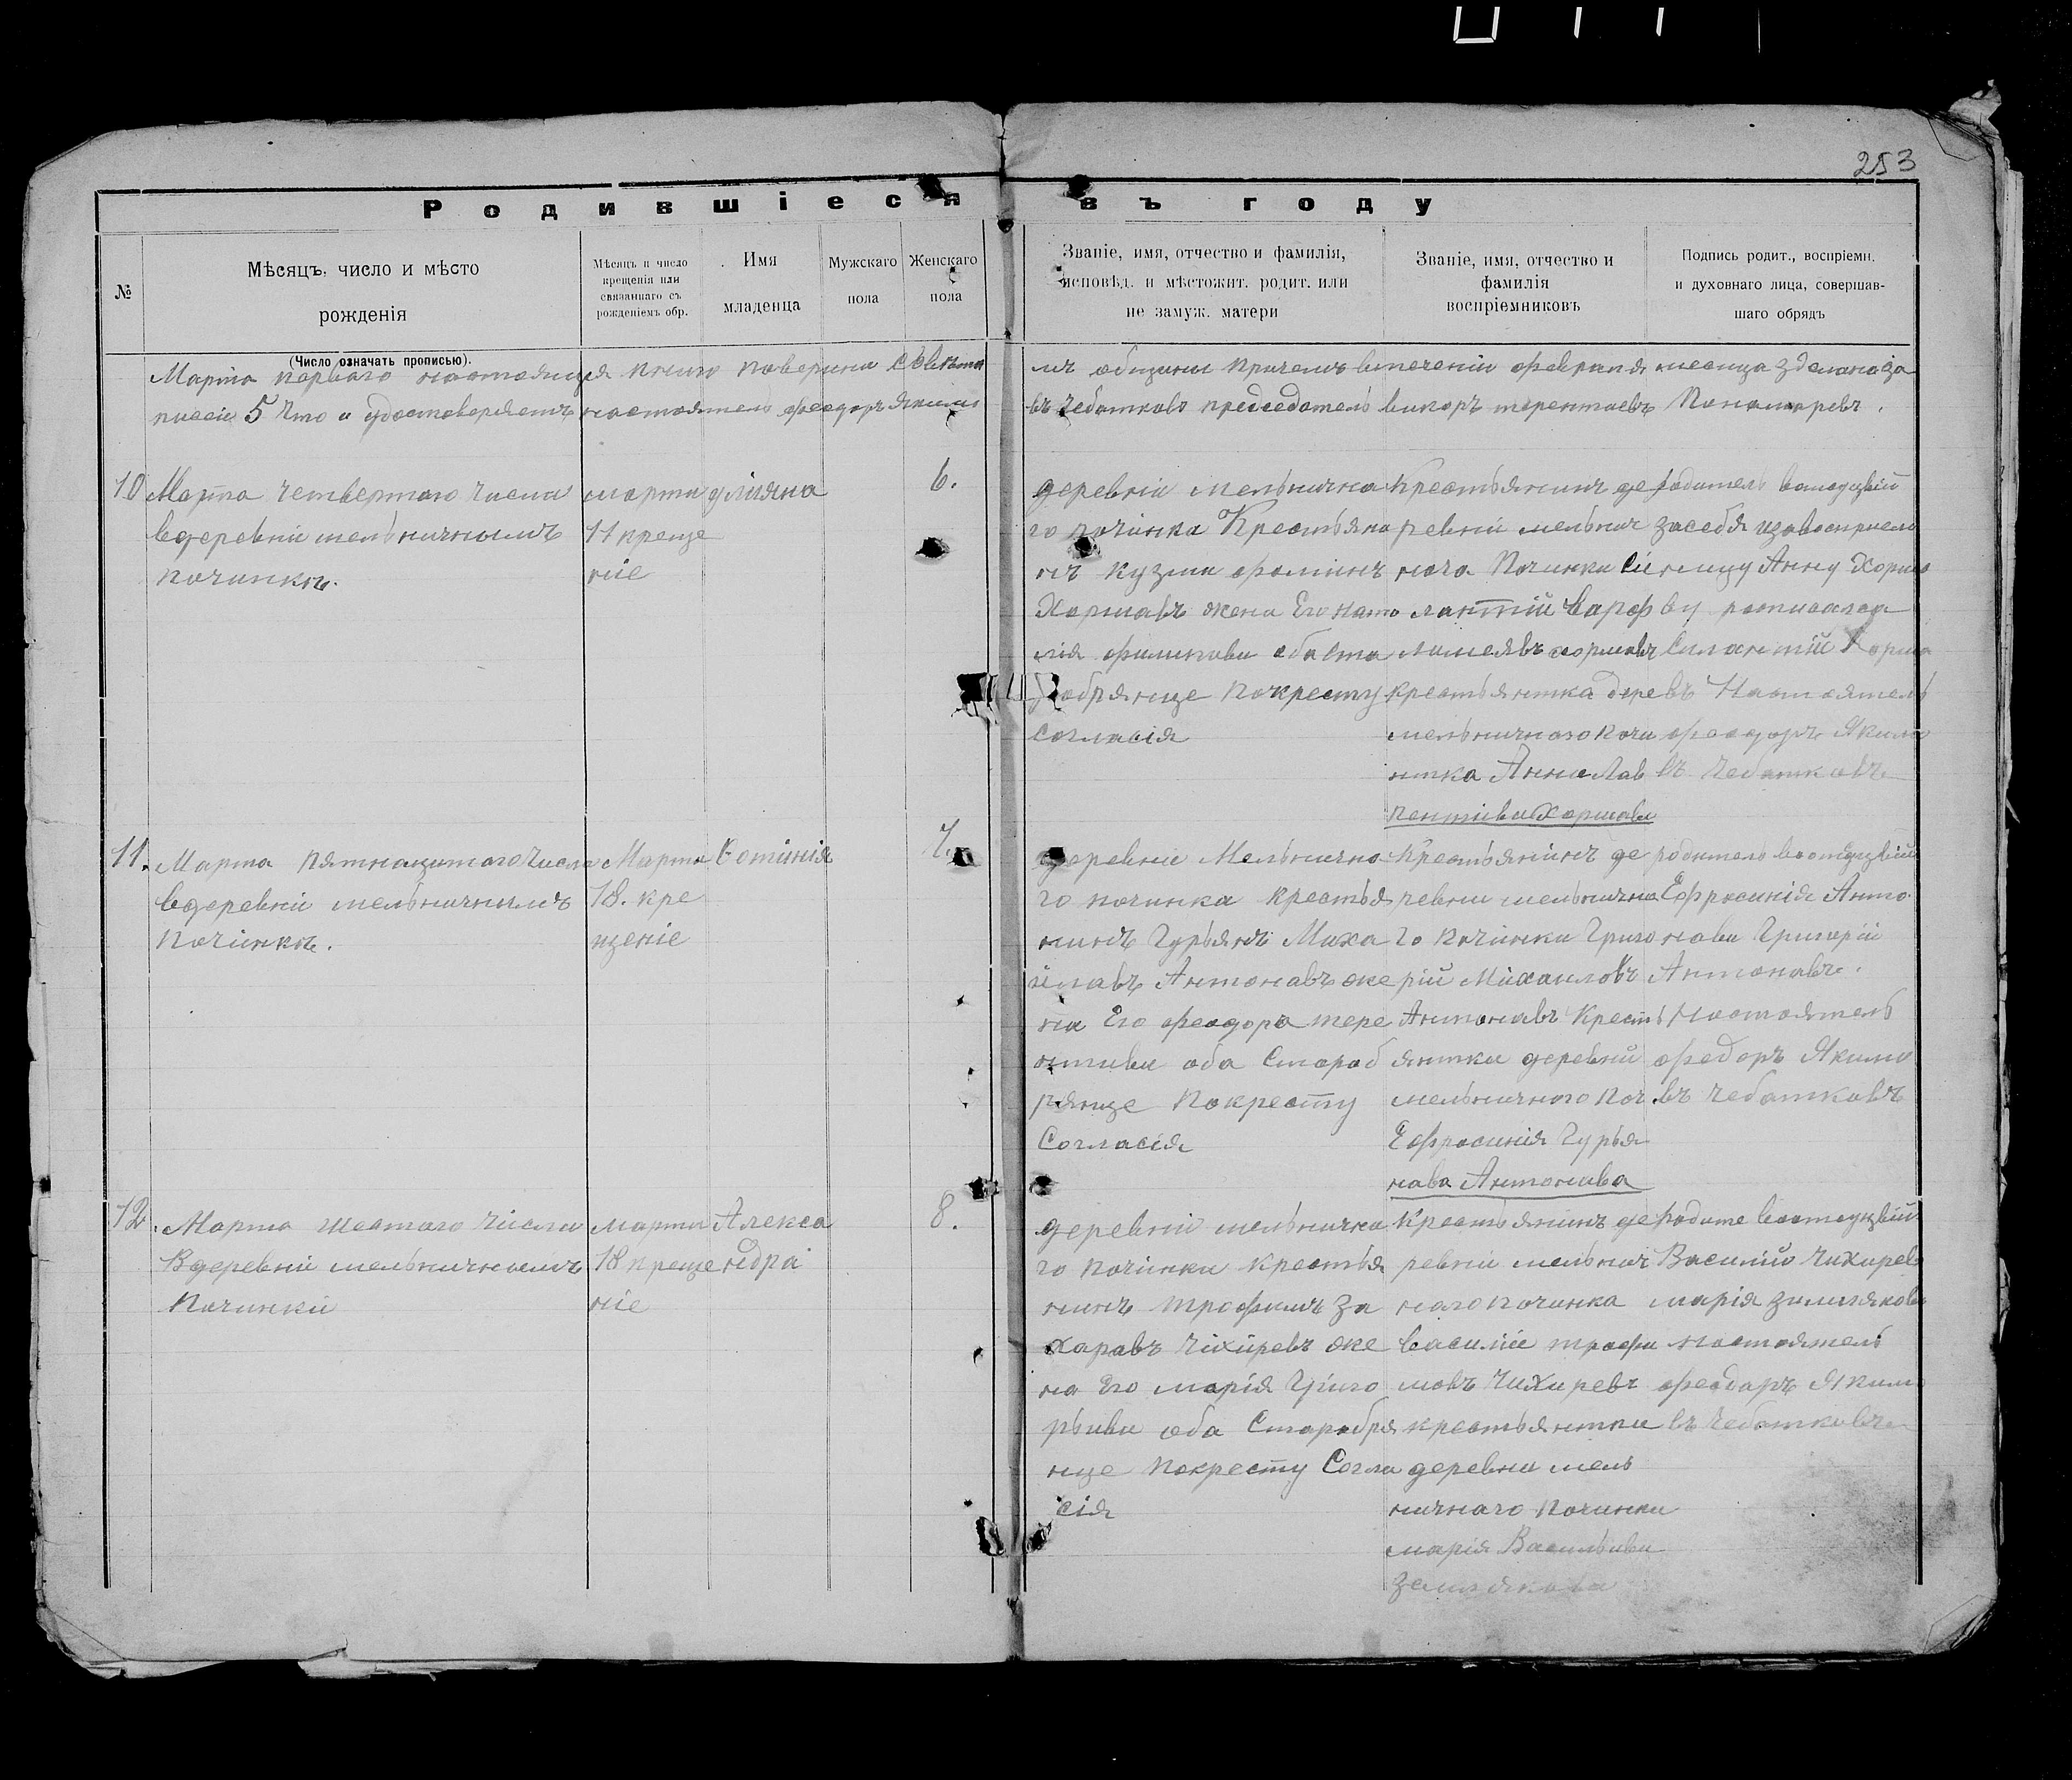 253
Родившіеся въ году
№
Мѣсяцъ, число и мѣсто
рожденія
(Число означать прописью).
Мѣсяцъ и число
крещенія или
связаннаго съ
рожденіемъ обр.
Имя
младенца
Мужскаго
пола
Женскаго
пола
Званіе, имя, отчество и фамилія,
исповѣд. и мѣстожит. родит. или
не замуж. матери
Званіе, имя, отчество и
фамилія
воспріемниковъ
Подпись родит., воспріемн.
и духовнаго лица, совершав-
шаго обрядъ
Марта перваго настоящая книга поверина
общины причемъ втечении февраля месяца зделано за
писей 5 Что и удостоверяетъ настоятель феодоръ якимо
въ Чебатковъ председатель викоръ терентьевъ Пономаревъ.
10
Марта четвертаго числа
вдеревни мельничнымъ
починкъ.
марта
11 креще
ніе
улияна
6.
деревни мельнично
го починка Крестьяни
нъ кузма фоминъ
Хоршавъ жена Его ната
лія филипова оба ста
рообрянце покресту
согласія
Крестьянинъ де
ревни мельнич
нога Починка Си
лантій варфо
ламеявъ хоршавъ
крестьянтка дере
мельничного почи
нтка Анна Лав
рентіева Хоршава
родитель
засебя изавосприем
ницу Анну Хорша
ву росписался
Силантій Хорша
въ Настоятель
феодоръ Якимо
въ Чебатковъ
11.
Марта пятнацитого числа
вдеревни мельничнымъ
Починкъ.
Марта
18. кре
щеніе
Фотінія
7.
деревни Мельнично
го починка крестья
нинъ Гурьянъ Миха
йлавъ Антонавъ же
на Его феодора тере
нтива оба Староб
рянце Покресту
Согласія
Крестьянинъ де
ревни мельнично
го Починка Григо
рій Михаиловъ
Антонавъ Кресть
янтка деревни
мельничного Поч
Ефросинія Гурья
нова Антонива
родитель
Ефросинія Анто
нова Григорій
Антонавъ.
Настоятель
федоръ Якимо
въ Чебатковъ
12.
Марта шестого числа
Вдеревни мельничнымъ
Починки
марта
18 креще
ніе
Алекса
ндра
8.
деревни мельнично
го починка крестья
нинъ трофимъ за
харавъ Чихиревъ же
на Его марія Григо
рьива оба Старобря
нце Покресту Согла
сія
Крестьянинъ де
ревни мельнич
ного починка
василие трофи
мовъ Чихиревъ
крестьянтка
деревни мель
ничнаго Починка
марія Васильива
землякова
родите
Василийо Чихирев
марія землякова
настоятель
феодаръ Якимо
въ Чебатковъ